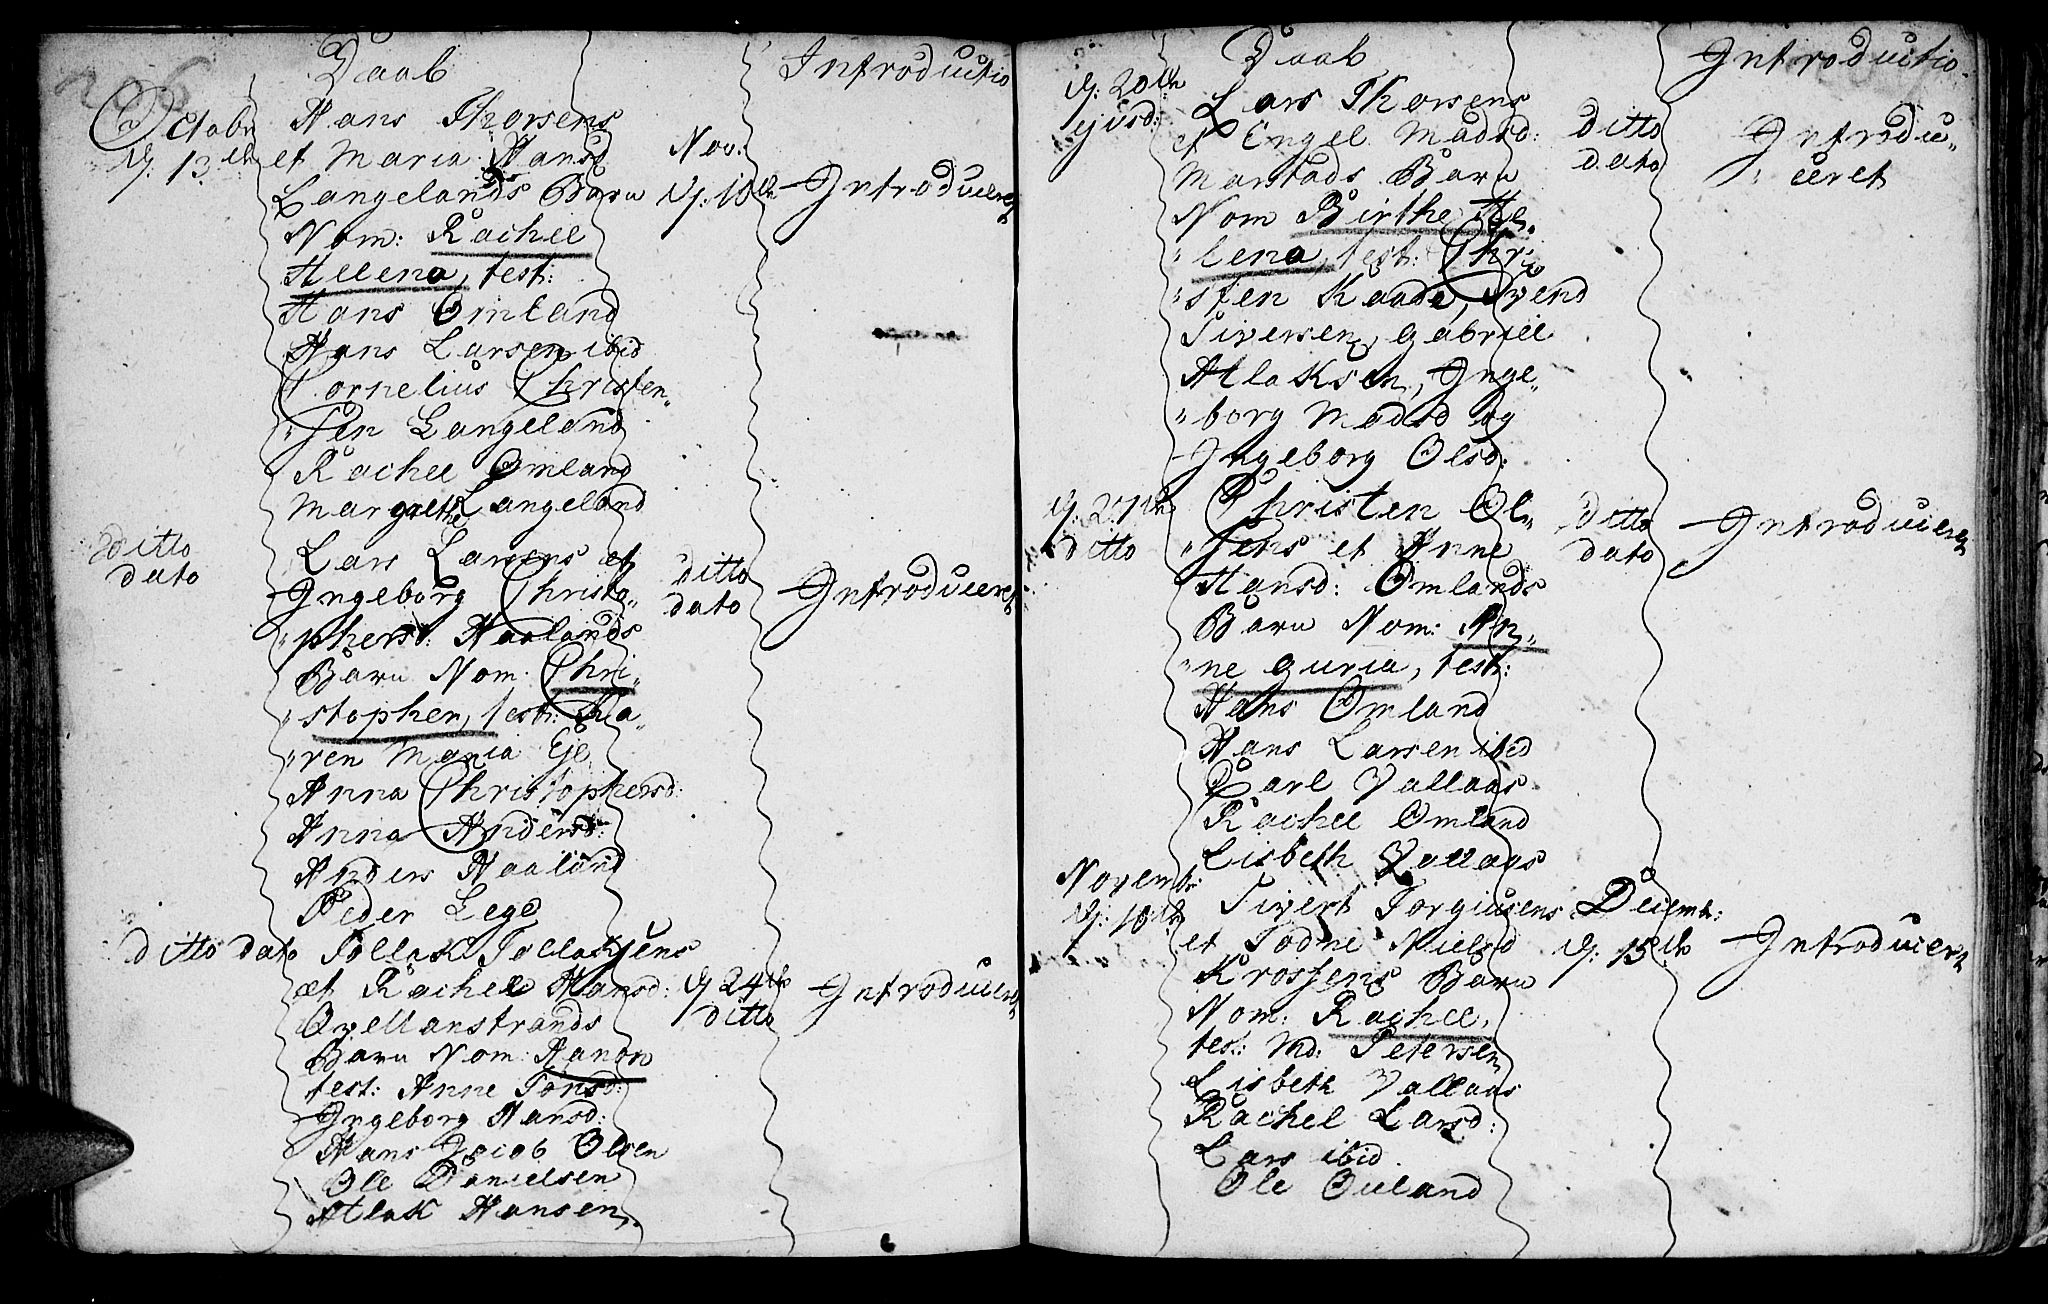 206
Daab
Introductio
October
d: 13de
Hans Thorsens
et Maria Hansd
Langelands Barn
Nom: Rachel
Helena, test:
Hans Omland
Hans Larsen ibid
Cornelius Christen„
„sen Langeland
Rachel Omland
Margrethe Langeland
Nov:
d: 10de
Introduceret
ditto
dato
Lars Larsens et
Ingeborg Christo„
„phersd: Haalands
Barn Nom: Chri„
„stopher, test: Ka„
„ren Maria Eje
Anna Christophersd:
Anna Andersd:
Anders Haaland
Peder Lege
ditto
dato
Introduceret
ditto dato
Tollak Tollaksens
et Rachel Hansd:
Qvellanstrands
Barn Nom: Hanon
test: Anne Torsd:
Ingeborg Hansd:
Hans Jacob Olsen
Ole Danielsen
Atlak Hansen
d 24de
ditto
Introduceret
Daab
Introductio
d: 20de
ejusd:
Lars Thorsens
et Engel Madsd:
Marstads Barn
Nom Birthe He„
„lena, test: Chri„
„sten Kaade, Svend
Siversen, Gabriel
Atlaksen, Inge„
„borg Madsd og
Ingeborg Olsd:
ditto
dato
Introdu„
„ceret
d: 27de
ditto
Christen Ol„
„sens et Anne
Hansd: Omlands
Barn Nom: An„
„ne Guria, test:
Hans Omland
Hans Larsen ibid
Carl Vallaas
Rachel Omland
Lisbeth Vallaas
ditto
dato
Introduceret
Novembr:
d: 10de
Sivert Torgiusens
et Todne Nielsd
Krossens Barn
Nom: Rachel,
test: Md: Petersen
Lisbeth Vallaas
Rachel Larsd:
Lars ibid
Ole Ouland
Decemb:
d: 15de
Introduceret